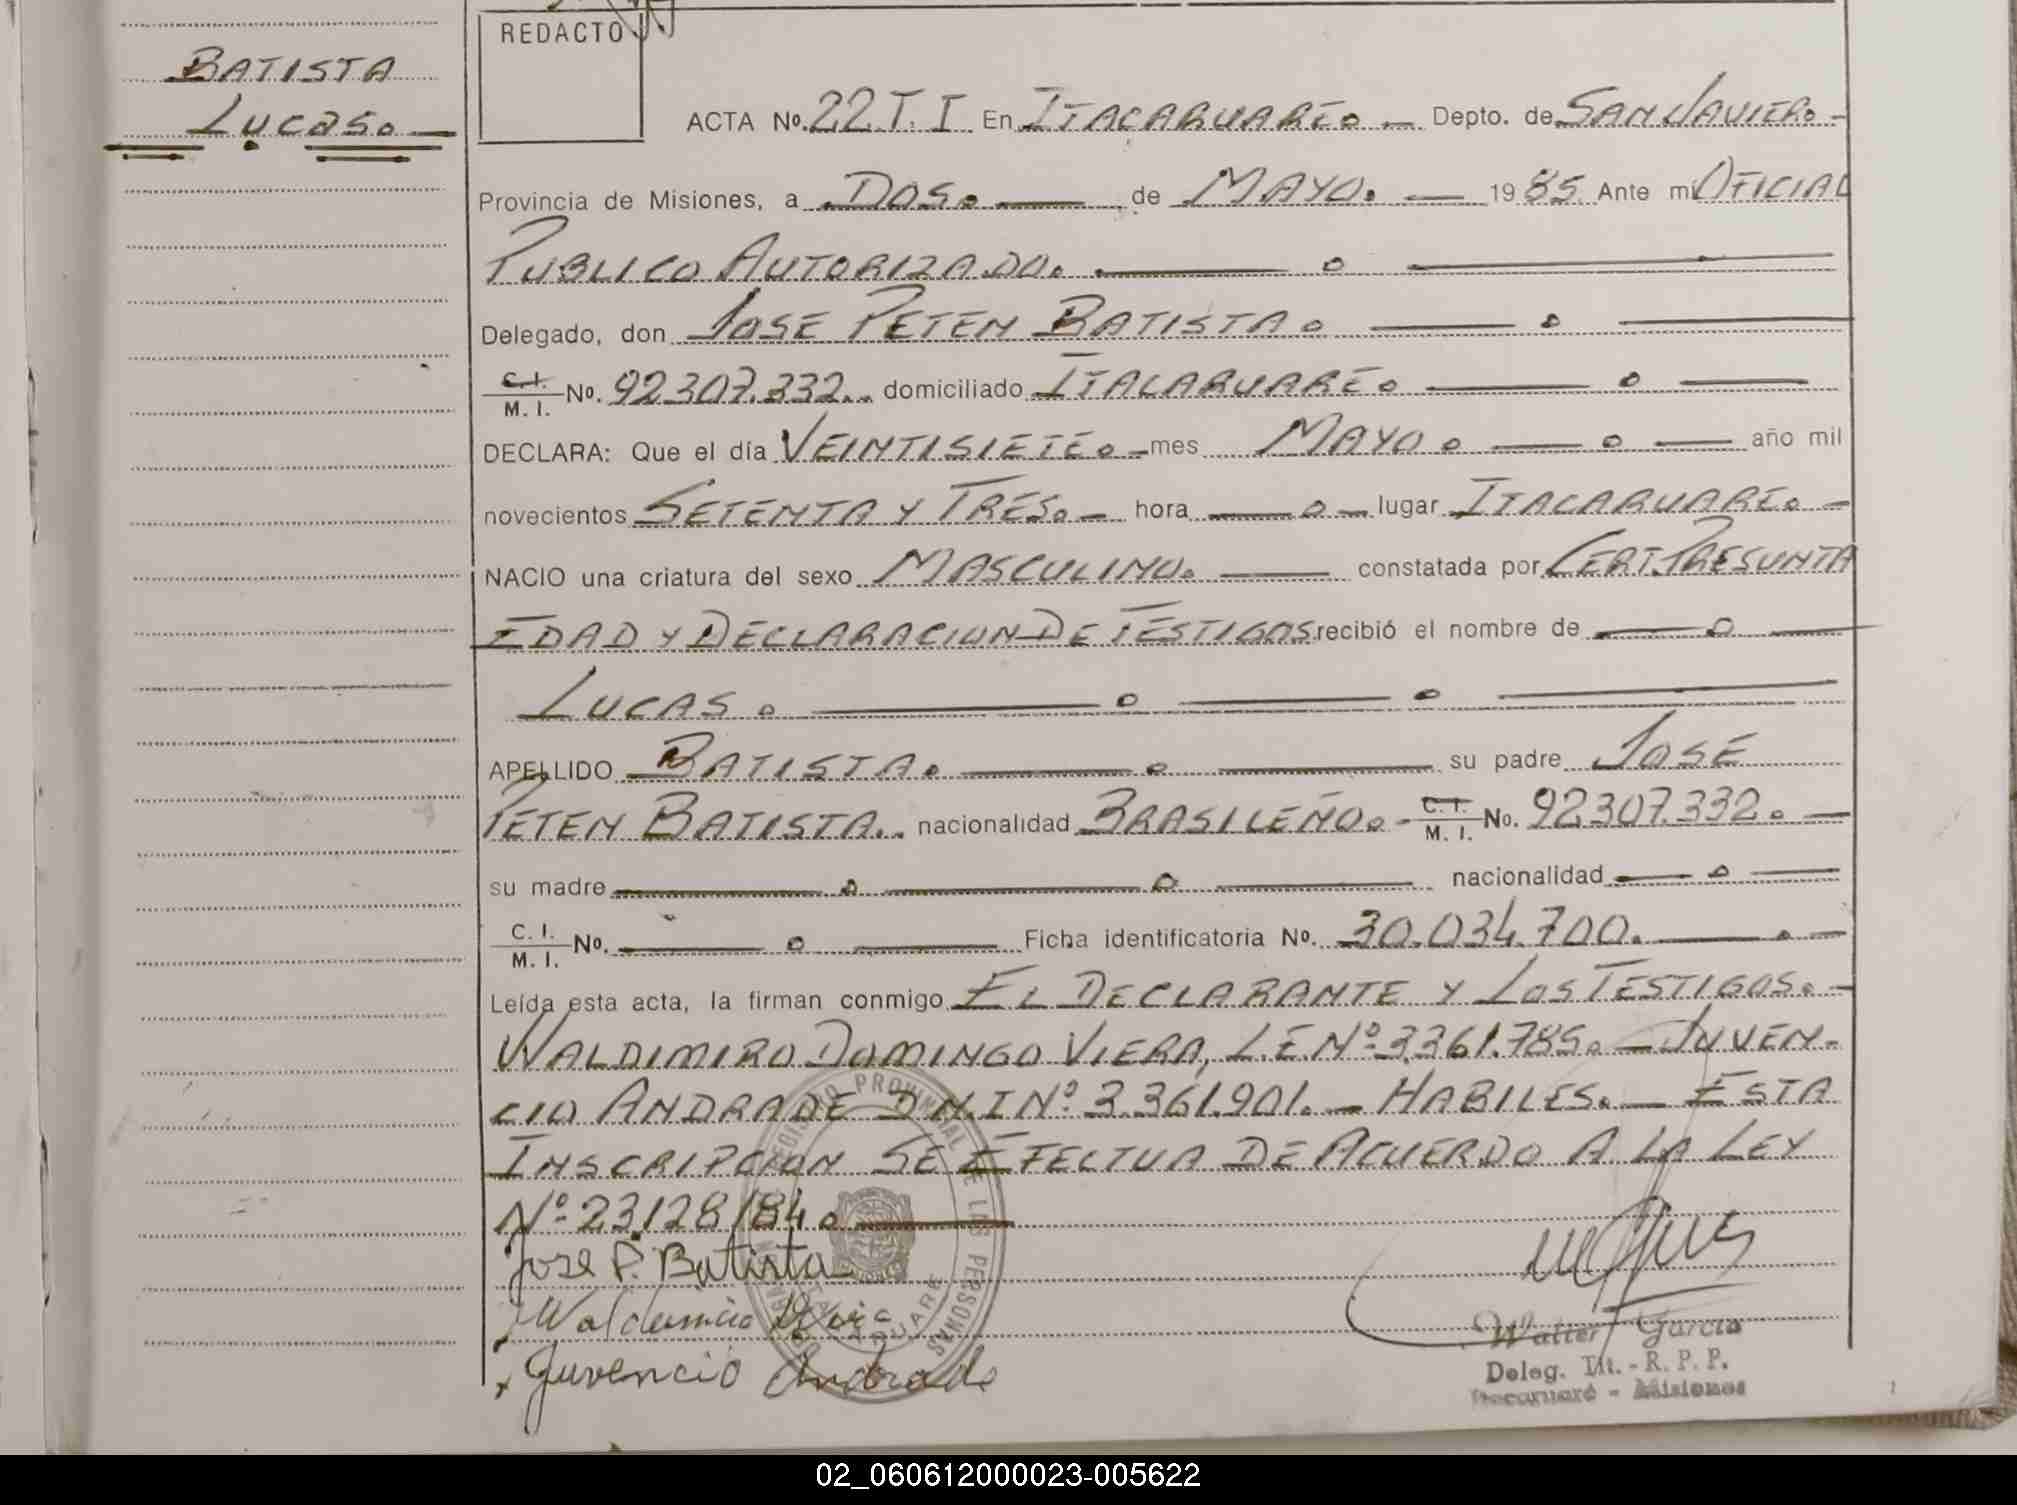 BATISTA
LUCAS.
REDACTO
ACTA No. 22.T.I En ITACARUARE. Depto. de SAN JAVIER.
Provincia de Misiones, a DOS. de MAYO. 1985 Ante mi OFICIAL
PUBLICO AUTORIZADO.
Delegado, don JOSE PETEN BATISTA.
C.I. M.I. No. 92.307.332. domiciliado ITACARUARE.
DECLARA: Que el día VEINTISIETE. mes MAYO. año mil
novecientos SETENTA Y TRES. hora lugar ITACARUARE.
NACIO una criatura del sexo MASCULINO. constatada por CERT. PRESUNTA
EDAD Y DECLARACION DE TESTIGOS recibió el nombre de
LUCAS.
APELLIDO BATISTA. su padre JOSE
PETEN BATISTA. nacionalidad BRASILEÑO. C.I. M.I. No. 92.307.332.
su madre nacionalidad
C.I. M.I. No. Ficha identificatoria No. 30.034.700.
Leída esta acta, la firman conmigo EL DECLARANTE Y LOS TESTIGOS.
WALDIMIRO DOMINGO VIERA, L.E.Nº 3.361.785. JUVEN-
CIO ANDRADE D.N.I Nº 3.361.901. HABILES. ESTA
INSCRIPCION SE EFECTUA DE ACUERDO A LA LEY
Nº 23.128/84.
Jose P. Batista
Juvencio Andrade
REGISTRO PROVINCIAL DE LAS PERSONAS
Walter Garcia
Deleg. Tit. - R. P. P.
Itacaruaré - Misiones
02_060612000023-005622